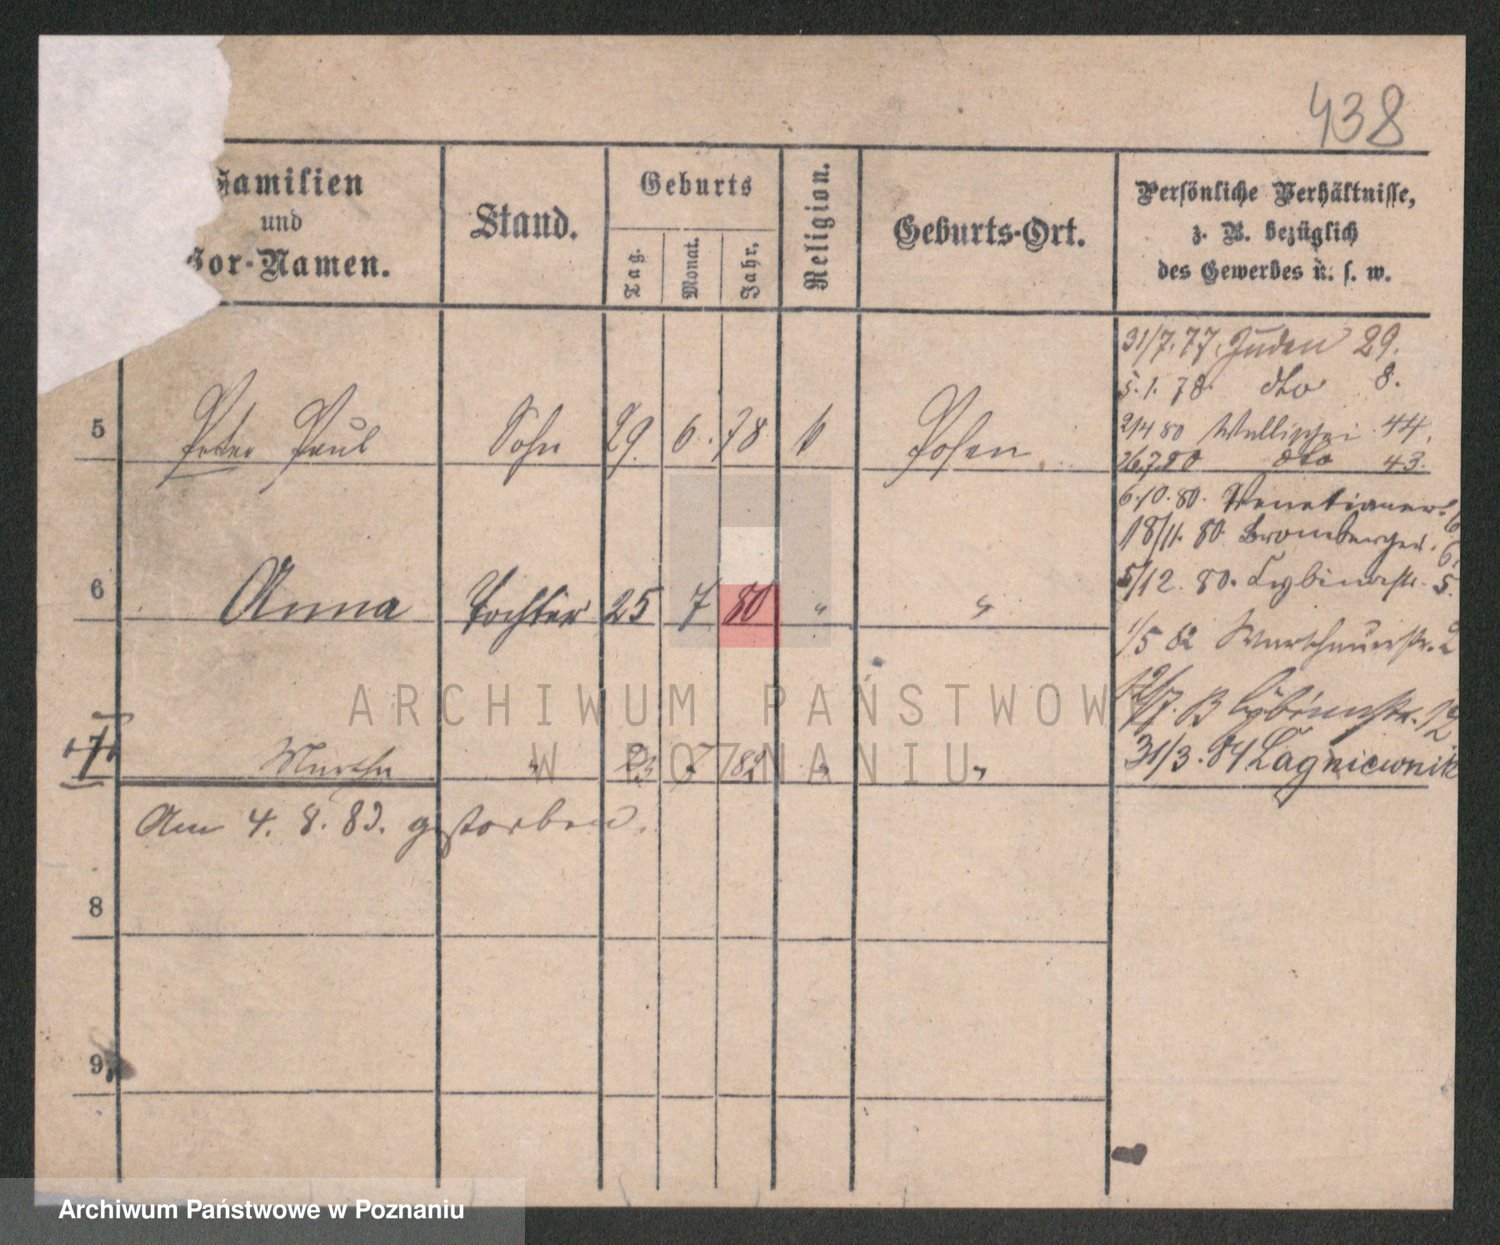 438
Familien
und
Vor-Namen.
Stand.
Geburts
Tag.
Monat.
Jahr.
Religion.
Geburts-Ort.
Persönliche Verhältnisse,
z. B. bezüglich
des Gewerbes u. s. w.
31/7. 77. Juden 29.
5. 1. 78. dto 8.
21/4 80 Wallischei 44.
26.7.80 dto 43.
5 Peter Paul Sohn 29. 6. 78 k Posen
6.10.80. Venetianer
18/11. 80 Brombergerst. 6.
5/12. 80. Lybinerstr. 5.
6 Anna Tochter 25 7 80 " "
1/5 82 Warschauerstr. 2
12/7. B Cybinerstr. 12
31/3. 84 Lagniewnik
7 Martha " 23 7 82 " "
Am 4. 8. 83. gestorben.
8
9
ARCHIWUM PAŃSTWOWE
W POZNANIU
Archiwum Państwowe w Poznaniu